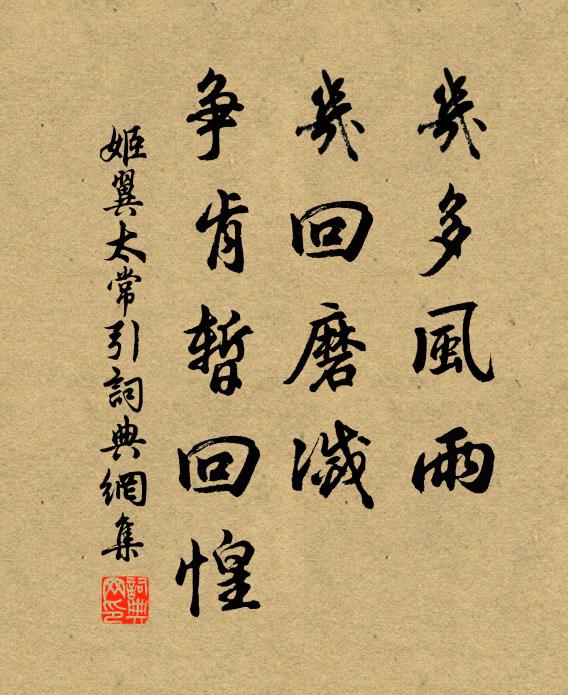 幾多風雨
幾回磨滅
爭肯暫回惶
姬翼太常引詞典網集
詞典网印